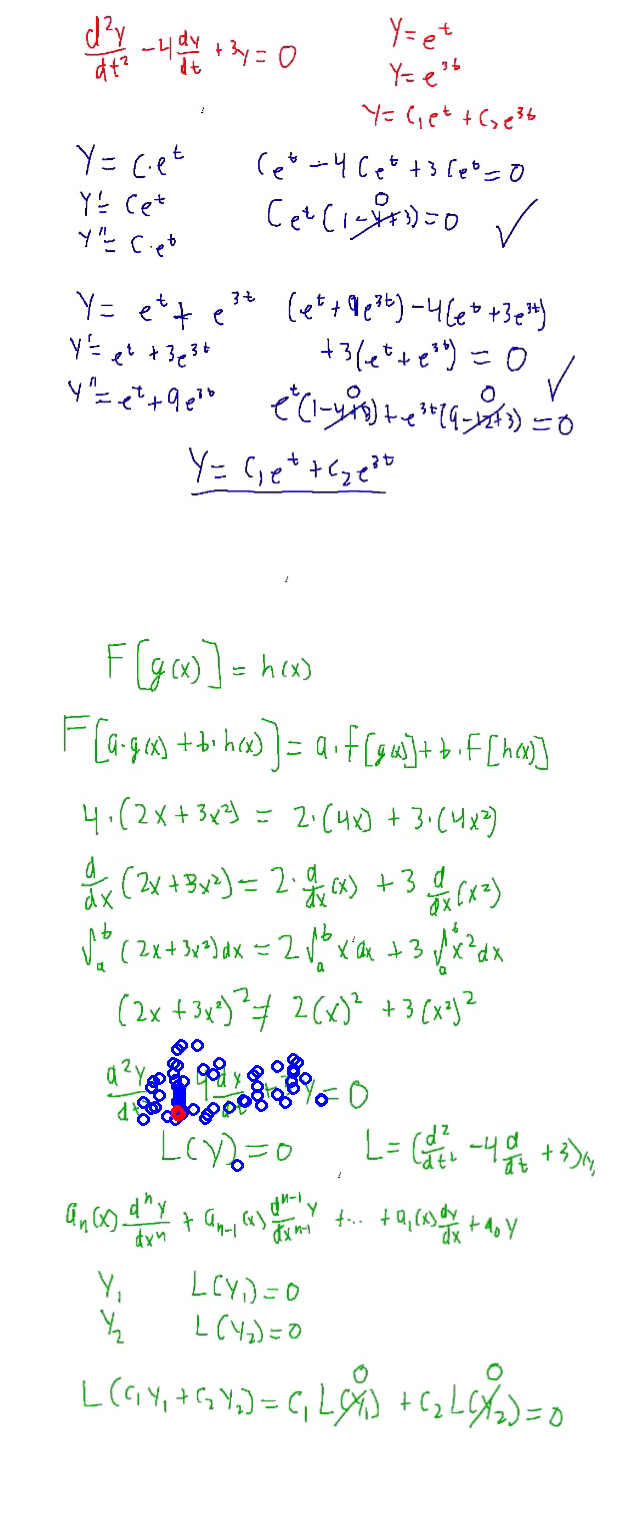 d²y/dt² - 4 dy/dt + 3y = 0
y = e^t
y = e^3t
y = C₁e^t + C₂e^3t
y = C·e^t
Ce^t - 4Ce^t + 3Ce^t = 0
y' = Ce^t
Ce^t(1-4+3) = 0 ✓
0
y'' = C·e^t
y = e^t + e^3t
(e^t + 9e^3t) - 4(e^t + 3e^3t)
y' = e^t + 3e^3t
+3(e^t + e^3t) = 0 ✓
y'' = e^t + 9e^3t
0 0
e^t(1-4+3) + e^3t(9-12+3) = 0
y = C₁e^t + C₂e^3t
F[g(x)] = h(x)
F[a·g(x) + b·h(x)] = a·F[g(x)] + b·F[h(x)]
4·(2x + 3x²) = 2·(4x) + 3·(4x²)
d/dx (2x + 3x²) = 2·d/dx (x) + 3 d/dx (x²)
∫_a^b (2x + 3x²)dx = 2∫_a^b x dx + 3∫_a^b x² dx
(2x + 3x²)² ≠ 2(x)² + 3(x²)²
d²y = 0
L(y) = 0
L = (d²/dt² - 4 d/dt + 3)
a_n(x) dⁿy/dxⁿ + a_{n-1}(x) d^{n-1}y/dx^{n-1} + ... + a₁(x) dy/dx + a₀y
y₁ L(y₁) = 0
y₂ L(y₂) = 0
0 0
L(C₁y₁ + C₂y₂) = C₁L(y₁) + C₂L(y₂) = 0